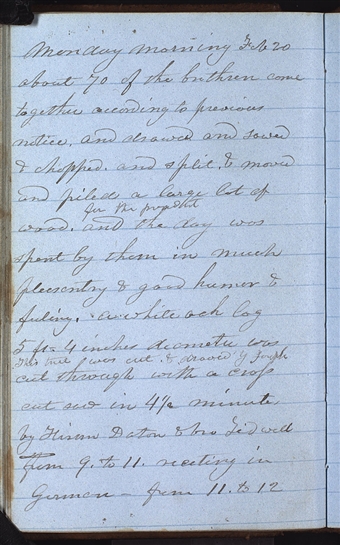 Monday morning Feb 20
about 70 of the brithren come
together according to previous
notice, and drawed and sawed
& chopped. and split. & moved
and piled a large lot of
for the prophet
wood. and the day was
spent by them in much
pleesentry & good humor &
feeling. a white oak log
5 ft 4 inches diameter was
This tree was cut & drawed by Joseph
cut through with a cross
cut saw in 4½ minute
by Hirum Daton & bro Tidwell
from 9. to 11. reciting in
German — from 11. to 12